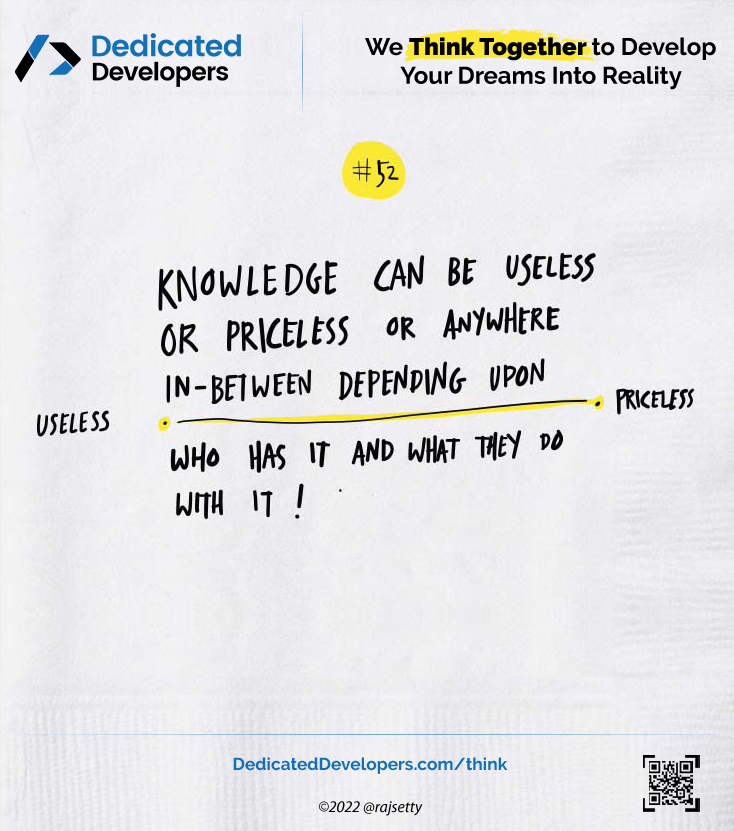 Dedicated
Developers
We Think Together to Develop
Your Dreams Into Reality
#52
KNOWLEDGE CAN BE USELESS
OR PRICELESS OR ANYWHERE
IN-BETWEEN DEPENDING UPON
USELESS
PRICELESS
WHO HAS IT AND WHAT THEY DO
WITH IT!
DedicatedDevelopers.com/think
©2022 @rajsetty